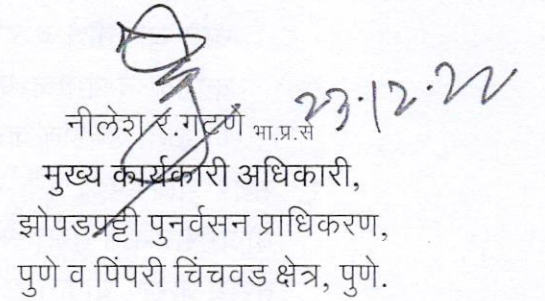 नीलेश र.गटणे भा.प्र.से 23.12.22
मुख्य कार्यकारी अधिकारी,
झोपडपट्टी पुनर्वसन प्राधिकरण,
पुणे व पिंपरी चिंचवड क्षेत्र, पुणे.